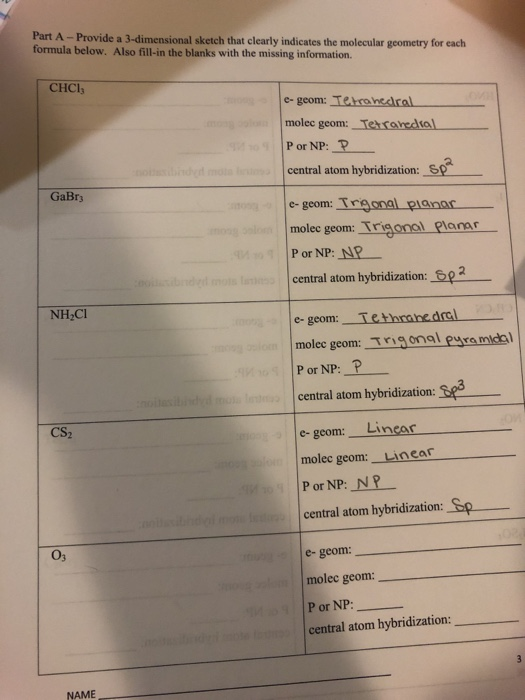 Part A – Provide a 3-dimensional sketch that clearly indicates the molecular geometry for each
formula below. Also fill-in the blanks with the missing information.
CHCl₃
e- geom: Tetrahedral
molec geom: Tetrahedral
P or NP: P
central atom hybridization: sp²
GaBr₃
e- geom: Trigonal planar
molec geom: Trigonal Planar
P or NP: NP
central atom hybridization: sp²
NH₂Cl
e- geom: Tethrahedral
molec geom: Trigonal pyramidal
P or NP: P
central atom hybridization: sp³
CS₂
e- geom: Linear
molec geom: Linear
P or NP: NP
central atom hybridization: Sp
O₃
e- geom:
molec geom:
P or NP:
central atom hybridization:
3
NAME